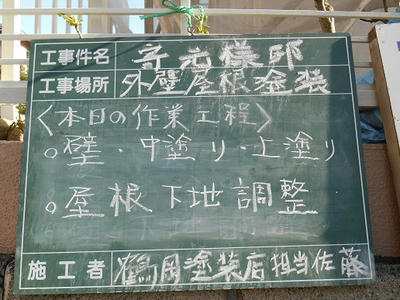 工事件名 寄元様邸
工事場所 外壁屋根塗装
〈本日の作業工程〉
○壁・中塗り・上塗り
○屋根下地調整
施工者 鶴岡塗装店担当佐藤